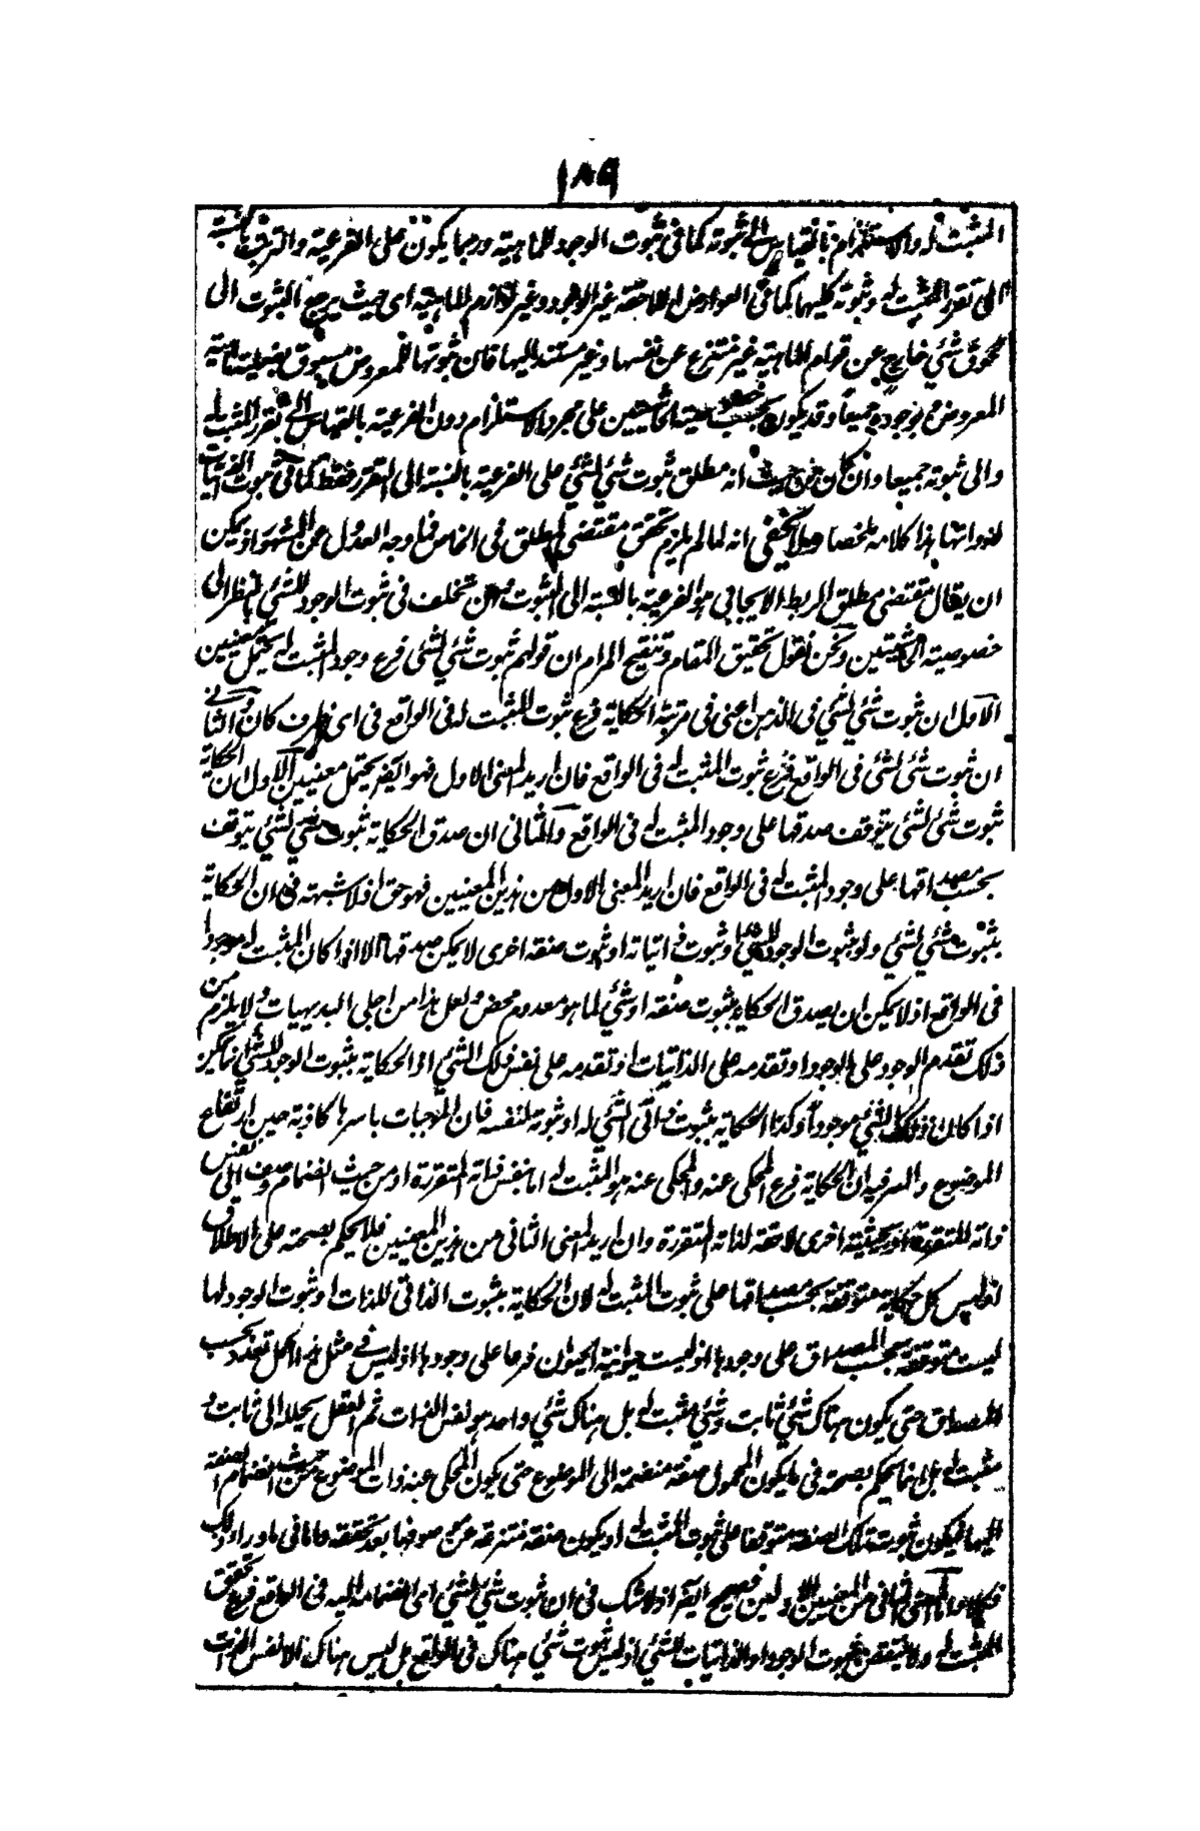 ١٨٩
المثبت له والاستلزام بالقياس الى ثبوته كما فى ثبوت الوجود للماهية وربما يكون على الفرعية والترتب بالنسبة
الى تقرر المثبت له وثبوته كليهما كما فى العوارض اللاحقة غير الوجود وغير لوازم الماهية اى حيث يرجع الثبوت الى
لحوق شئ خارج عن قوام الماهية غير منتزع عن نفسها وغير مستند اليها فان ثبوتها للمعروض مسبوق بفعلية ماهية
المعروض وبوجوده جميعا وقد يكون بحسب خصوصية الحاشيتين على مجرد الاستلزام دون الفرعية بالقياس الى تقرر المثبت له
والى ثبوته جميعا وان كان من حيث انه مطلق ثبوت شئ لشئ على الفرعية بالنسبة الى التقرر فقط كما فى ثبوت الذاتيات
لذواتها هذا كلامه ملخصا ولا يخفى انه لما لم يلزم تحقق مقتضى المطلق فى الخاص فما وجه العدول عن المشهور اذ يمكن
ان يقال مقتضى مطلق الربط الايجابى هو الفرعية بالنسبة الى الثبوت لكن تخلف فى ثبوت الوجود للشئ بالنظر الى
خصوصية الحاشيتين ونحن نقول تحقيق المقام وتنقيح المرام ان قولهم ثبوت شئ لشئ فرع وجود المثبت له يحتمل معنيين
الاول ان ثبوت شئ لشئ فى الذهن اعنى فى مرتبة الحكاية فرع ثبوت المثبت له فى الواقع فى اى ظرف كان والثانى
ان ثبوت شئ لشئ فى الواقع فرع ثبوت المثبت له فى الواقع فان اريد المعنى الاول فهو ايضا يحتمل معنيين الاول ان الحكاية
ثبوت شئ لشئ يتوقف صدقها على وجود المثبت له فى الواقع والثانى ان صدق الحكاية ثبوت شئ لشئ يتوقف
بحسب مصداقها على وجود المثبت له فى الواقع فان اريد المعنى الاول من هذين المعنيين فهو حق اذ لا شبهة فى ان الحكاية
بثبوت شئ لشئ ولو بثبوت الوجود للشئ او ثبوت ذاتياته او ثبوت صفة اخرى لا يمكن صدقها الا اذا كان المثبت له موجودا
فى الواقع اذ لا يمكن ان يصدق الحكاية بثبوت صفة او شئ لما هو معدوم محض ولعل هذا من اجلى البديهيات ولا يلزم من
ذلك تقدم الوجود على الوجود او تقدمه على الذاتيات او تقدمه على نفس ذلك الشئ اذ الحكاية بثبوت الوجود للشئ انما يمكن
اذا كان ذلك الشئ موجودا وكذا الحكاية بثبوت ذاتى الشئ له او ثبوته لنفسه فان الموجبات باسرها كاذبة حين ارتفاع
الموضوع والسر فيه ان الحكاية فرع المحكى عنه والمحكى عنه هو المثبت له اما بنفس ذاته المتقررة او من حيث انضمام وصف الى نفس
ذاته المتقررة او بحيثية اخرى لاحقة لذاته المتقررة وان اريد المعنى الثانى من هذين المعنيين فلا يحكم بصحته على الاطلاق
اذ ليس كل حكاية متوقفة بحسب مصداقها على ثبوت المثبت له لان الحكاية بثبوت الذاتى للذات او ثبوت الوجود لها
ليست متوقفة بحسب المصداق على وجودها اذ ليست حيوانية الحيوان فرعا على وجودها اذ ليس فى مثل هذا الحمل تعدد بحسب
المصداق حتى يكون هناك شئ ثابت وشئ مثبت له بل هناك شئ واحد هو نفس الذات ثم العقل يحلله الى ثابت و
مثبت له بل انما يحكم بصحته فى ما يكون المحمول صفة منضمة الى الموضوع حتى يكون المحكى عنه ذات الموضوع من حيث انضمام الصفة
اليها فيكون ثبوت تلك الصفة متوقفا على ثبوت المثبت له او يكون صفة منتزعة عن موصوفها بعد تحققه واما فى ما وراء ذلك
فلا واما المعنى الثانى من المعنيين الاولين فصحيح ايضا اذ لا شك فى ان ثبوت شئ لشئ اى انضمامه اليه فى الواقع فرع تحقق
المثبت له ولا ينتقض بثبوت الوجود او الذاتيات للشئ اذ ليس ثبوت شئ هناك فى الواقع بل ليس هناك الا نفس الذات